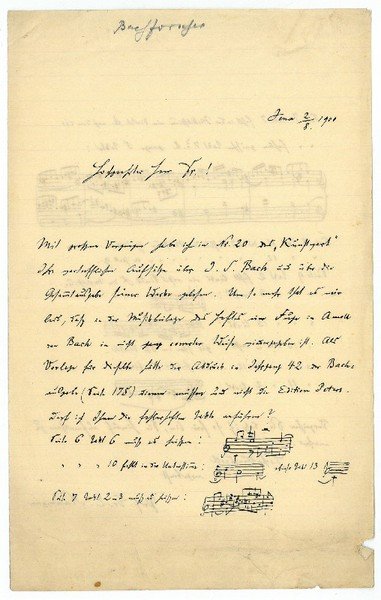 Bachforscher
Jena 2/8. 1900
Hochgeehrter Herr Dr.!
Mit grossem Vergnügen habe ich in No. 20 des „Kunstwart“
Ihre vortrefflichen Aufsätze über J. S. Bach und über die
Gesamtausgabe seiner Werke gelesen. Um so mehr thut es mir
leid, dass in der Musikbeilage des Heftes eine Fuge in A moll
von Bach in nicht ganz correcter Weise wiedergegeben ist. Als
Vorlage für dieselbe hätte der Abdruck in Jahrgang 42 der Bach
ausgabe (Seite 175) dienen müssen und nicht die Edition Peters.
Darf ich Ihnen die fehlerhaften Takte anführen?
Seite 6 Takt 6 muss es heissen:
" " 10 fehlt in der Unterstimme: Takt 13
Seite 7 Takt 2 und muss es heissen: